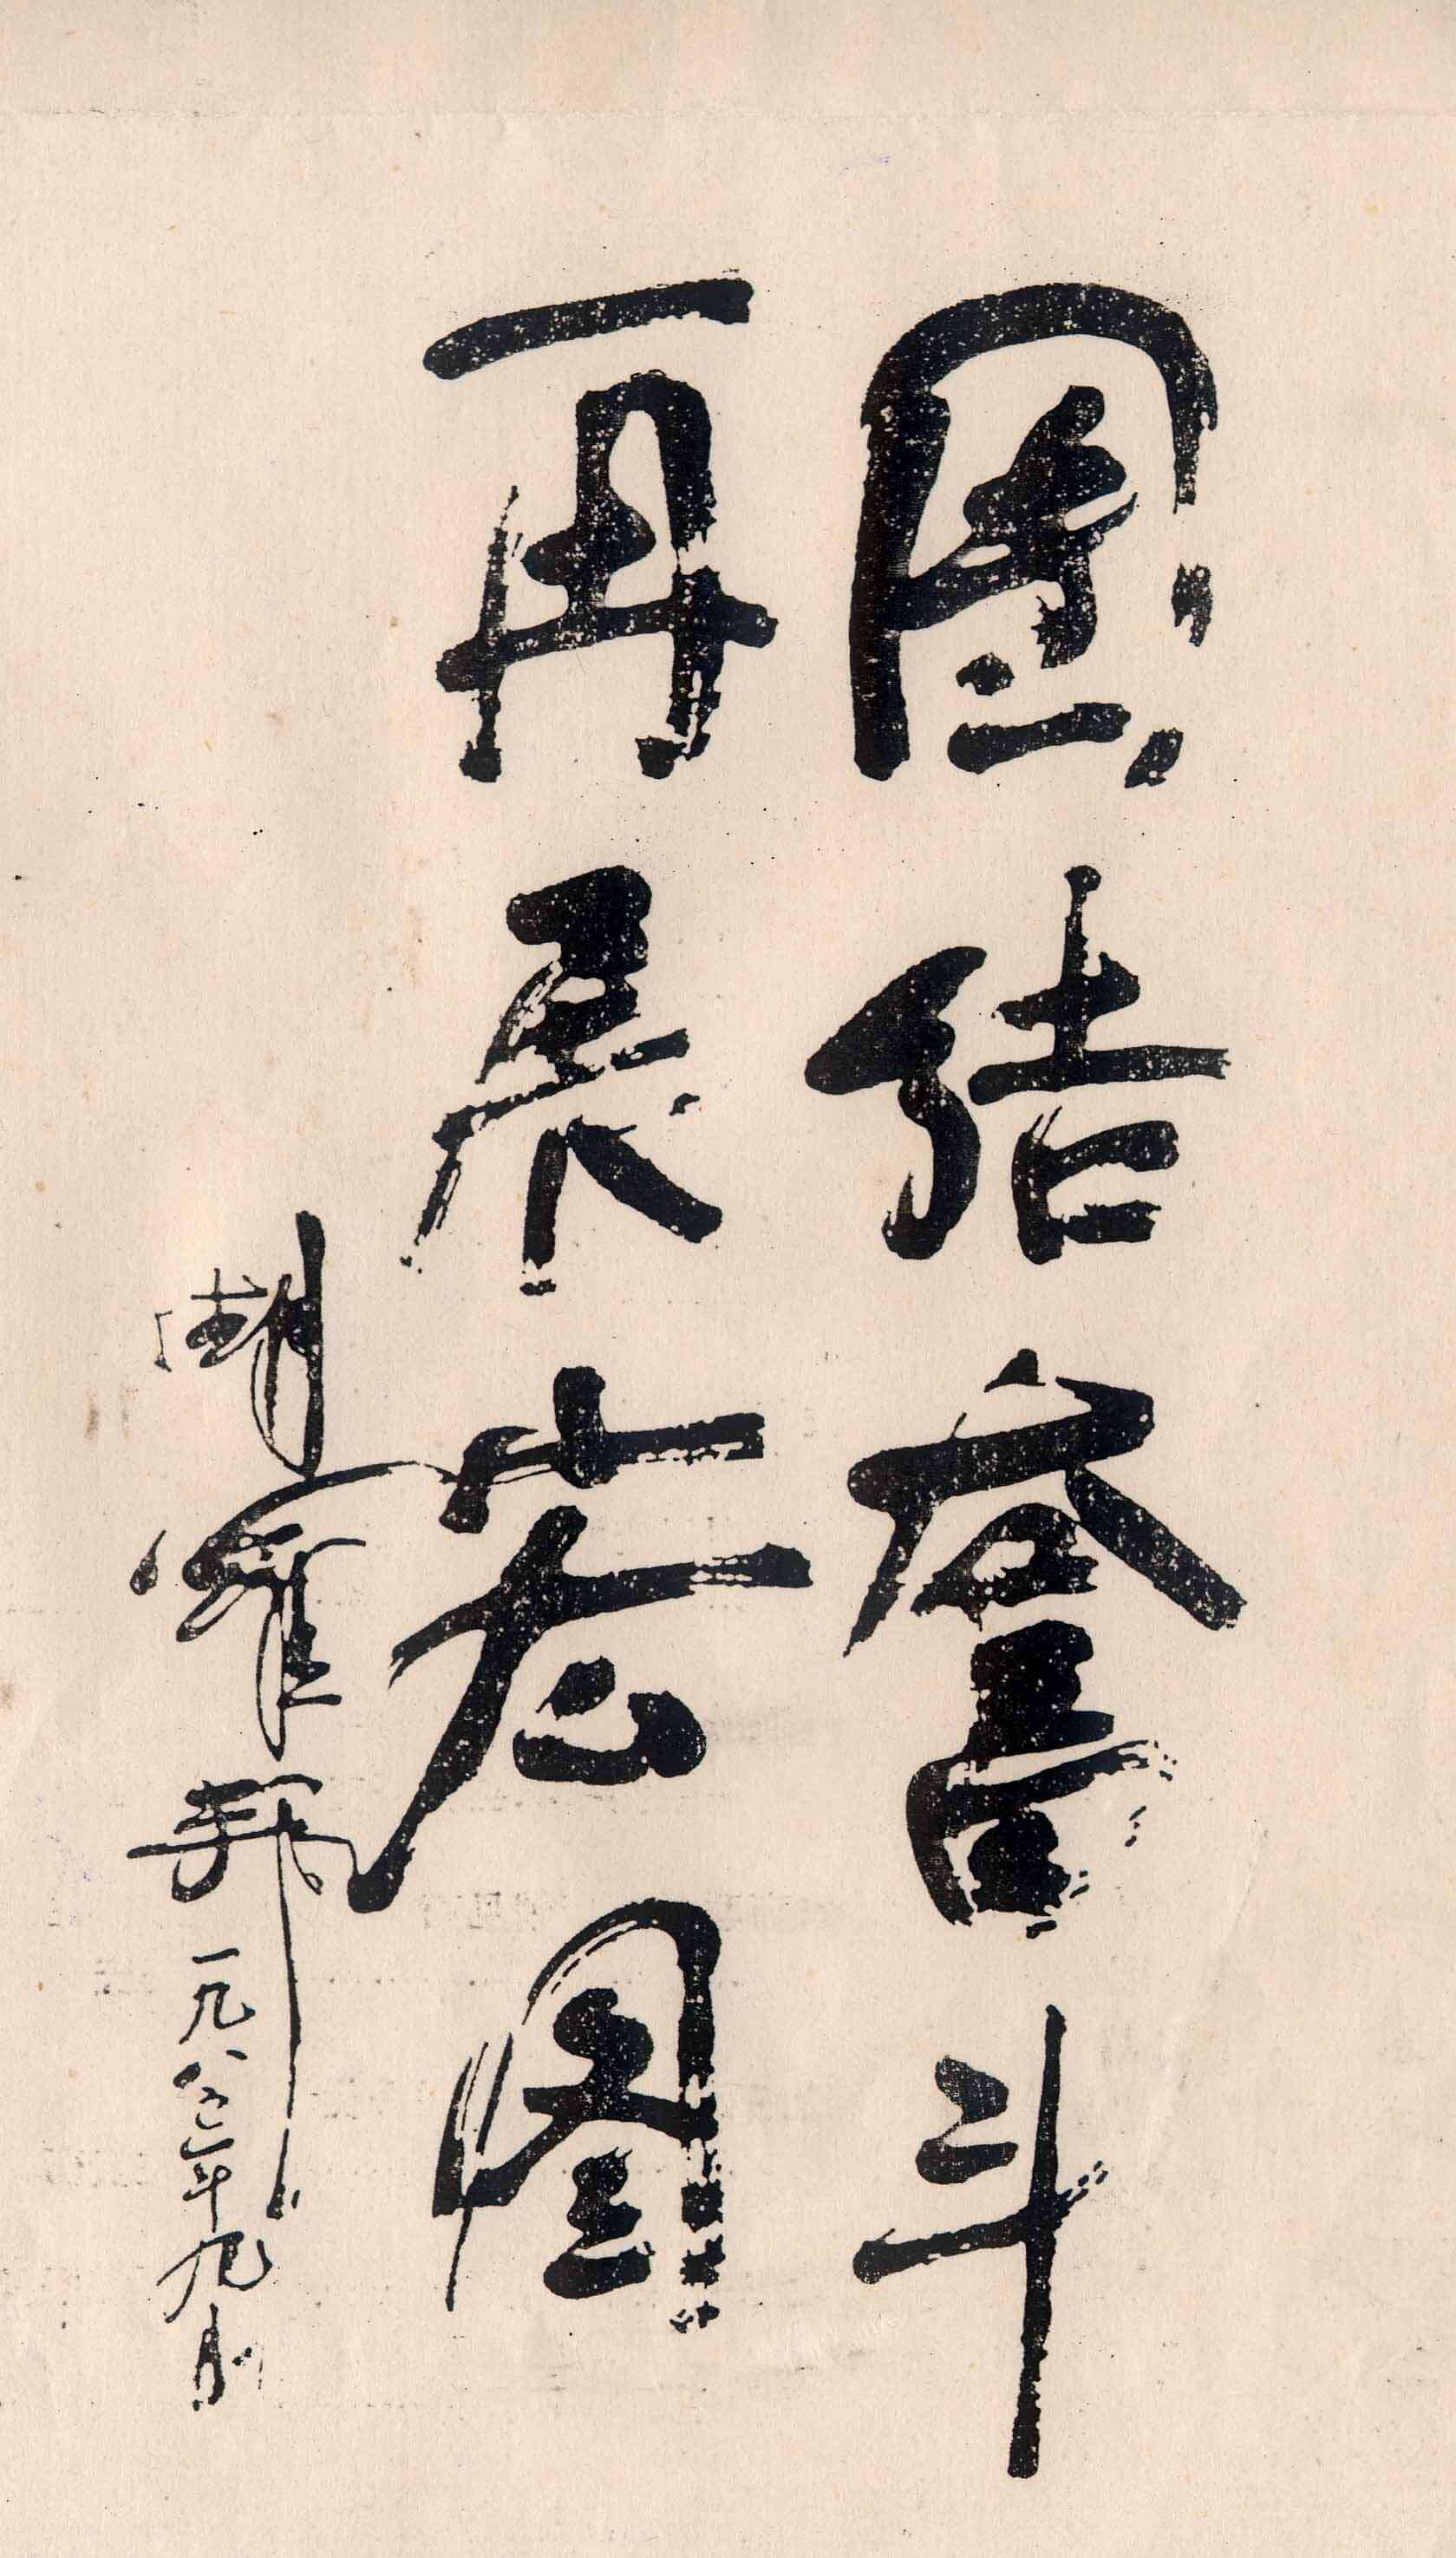 團结奮斗
再展宏图
胡耀邦 一九八三年九月